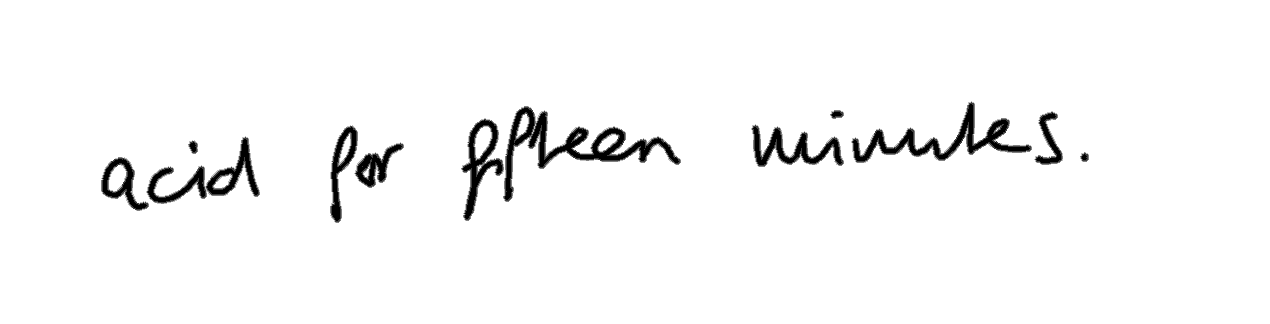 acid for fifteen minutes.